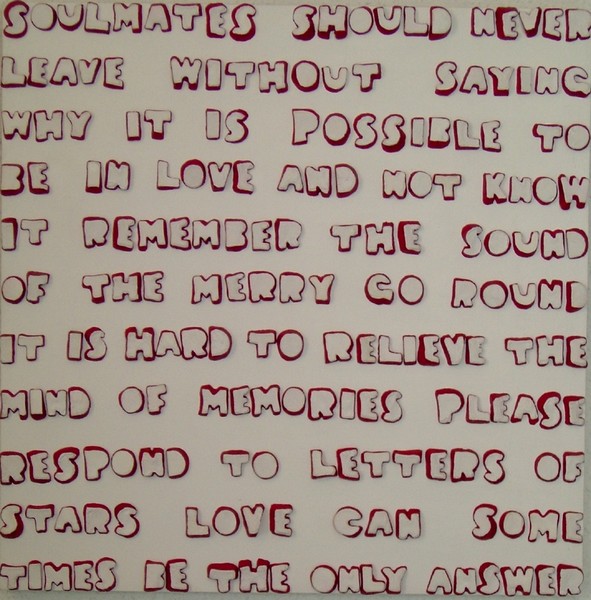 SOULMATES SHOULD NEVER
LEAVE WITHOUT SAYING
WHY IT IS POSSIBLE TO
BE IN LOVE AND NOT KNOW
IT REMEMBER THE SOUND
OF THE MERRY GO ROUND
IT IS HARD TO RELIEVE THE
MIND OF MEMORIES PLEASE
RESPOND TO LETTERS OF
STARS LOVE CAN SOME
TIMES BE THE ONLY ANSWER